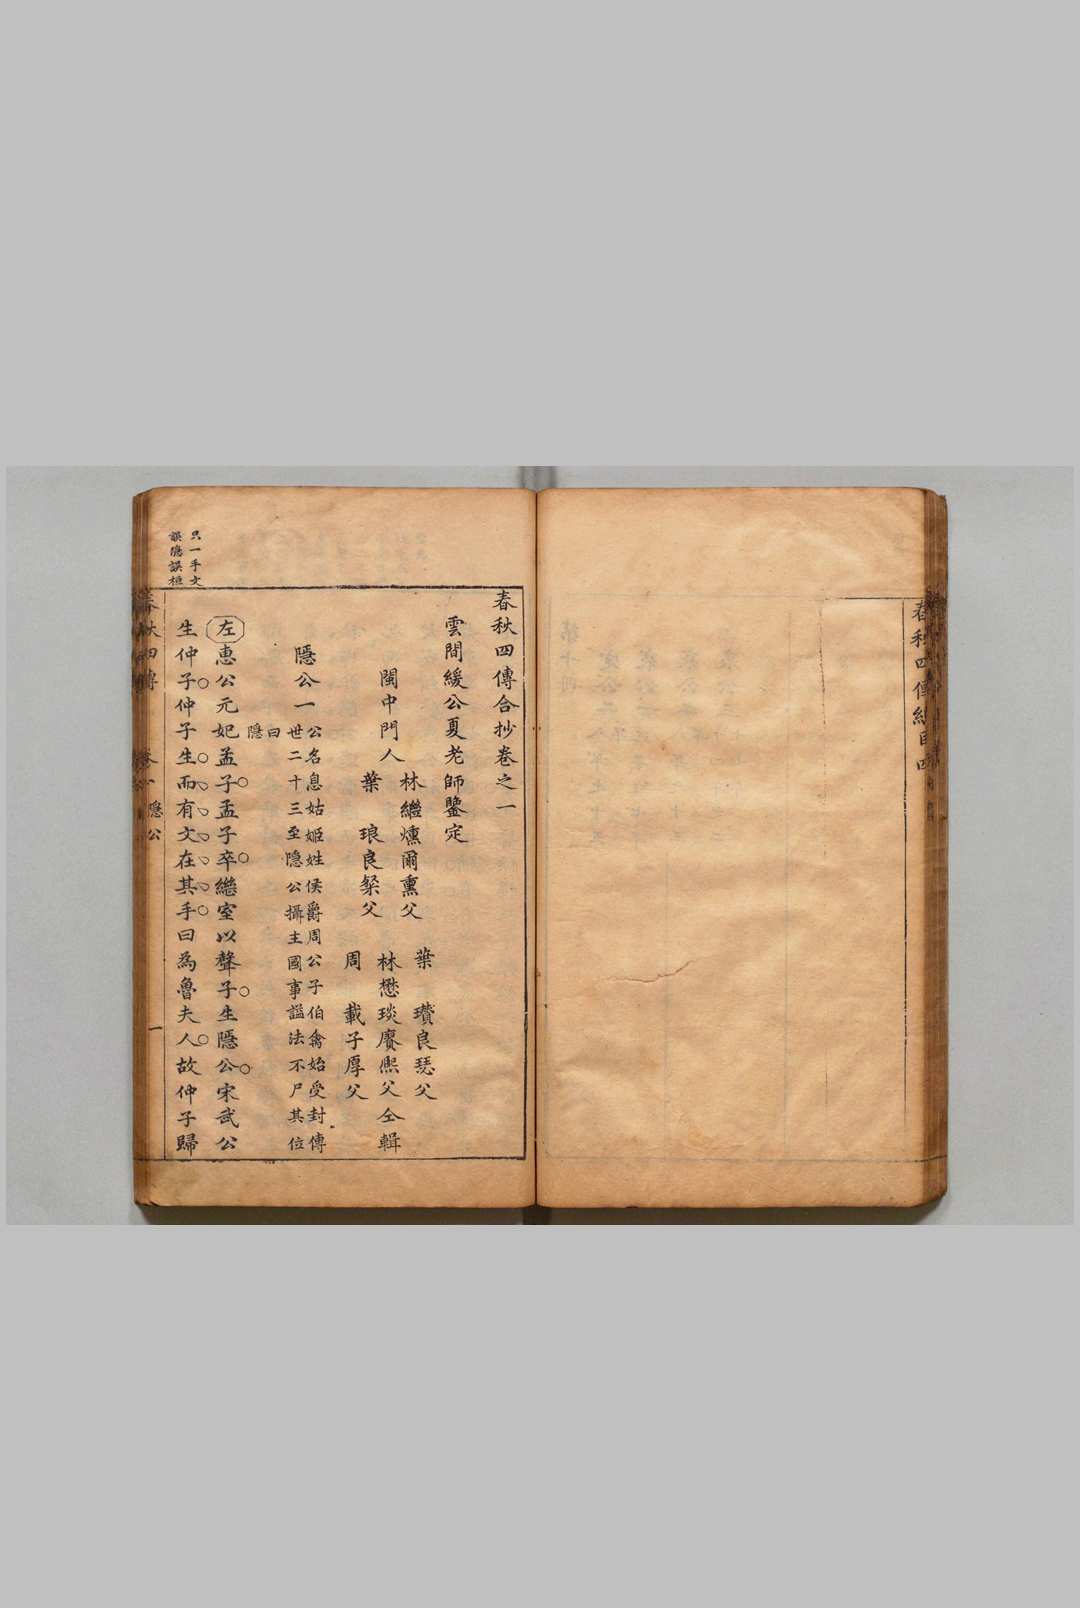 春秋四傳合抄卷之一
雲間緩公夏老師鑒定
閩中門人
林繼燻爾熏父
葉瓚良瑟父
林懋琰賡熙父仝輯
葉琅良粲父
周載子厚父
隱公一
公名息姑姬姓侯爵周公子伯禽始受封傳
世二十三至隱公攝主國事謚法不尸其位
曰
隱
左惠公元妃孟子孟子卒繼室以聲子生隱公宋武公
生仲子仲子生而有文在其手曰為魯夫人故仲子歸
只一手文
誤隱誤桓
隱公
一